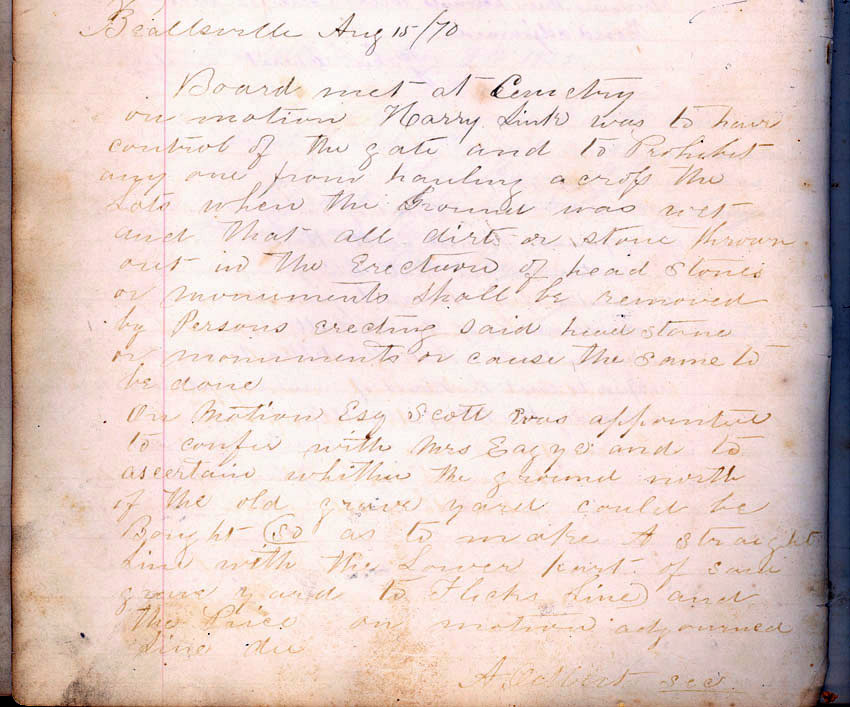 Beallsville Aug 15/70
Board met at Cemetry
on motion Harry Link was to have
control of the gate and to Prohibit
any one from hauling across the
Lots when the Ground was wet
and that all dirt or stone thrown
out in the Erection of head stones
or monuments shall be removed
by Persons erecting said head stone
or monuments or cause the same to
be done
On Motion Esq Scott was appointed
to confer with Mrs Eagye and to
ascertain whither the ground north
of the old grave yard could be
Bought so as to make A straight
Line with the Lower part of said
grave yard to Flicks Line and
the Price on motion adjourned
Sine die
A. sec.